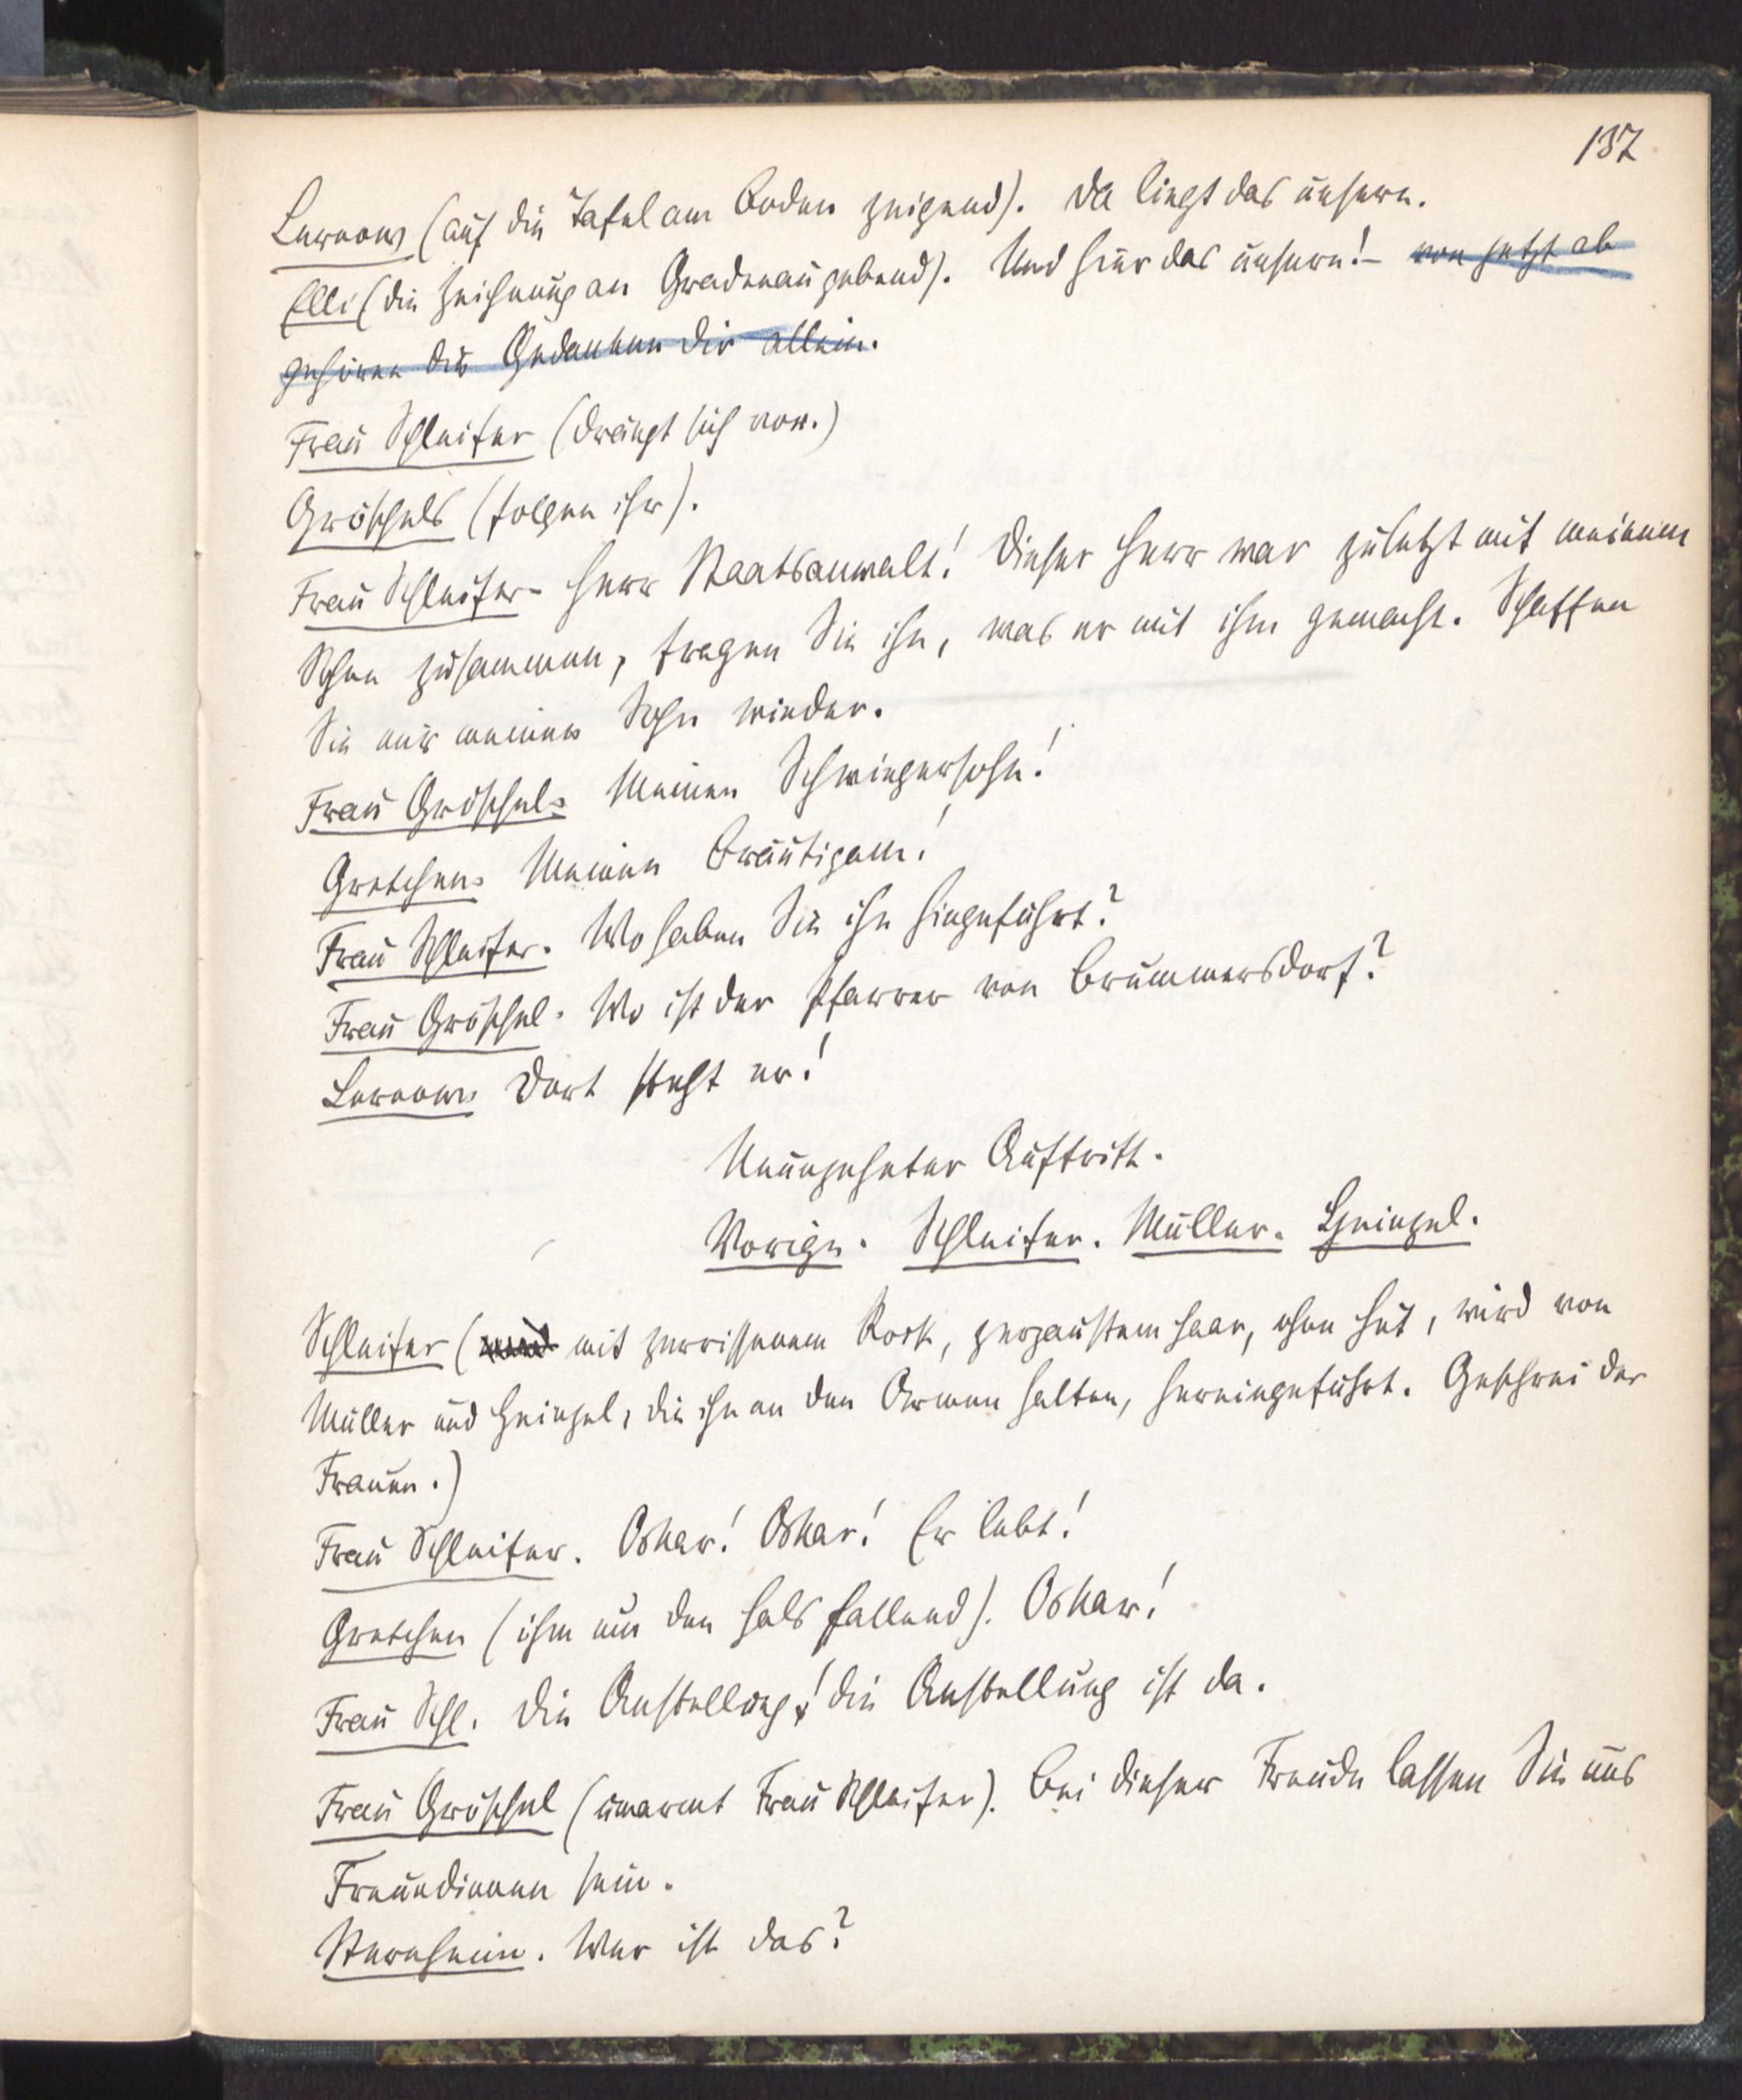 137
Lernom (auf die Tafel am Boden zeigend). Da liegt das unsere.
Elli (die Zeichnung an Gradenau gebend). Und hier das unsere! – von jetzt ab
gehören die Gedanken dir allein.
Frau Schleifer (drängt sich vor.)
Gröschels (folgen ihr).
Frau Schleifer. Herr Staatsanwalt! Dieser Herr war zuletzt mit meinem
Sohne zusammen, fragen Sie ihn, was er mit ihm gemacht. Schaffen
Sie mir meinen Sohn wieder.
Frau Gröschel. Meinen Schwiegersohn!
Gretchen. Meinen Bräutigam!
Frau Schleifer. Wo haben Sie ihn hingeführt?
Frau Gröschel. Wo ist der Pfarrer von Brummersdorf?
Lernom. Dort steht er!
Neunzehnter Auftritt.
Vorige. Schleifer. Müller. Heinzel.
Schleifer (wird mit zerrissenem Rock, zerzaustem Haar, ohne Hut, wird von
Müller und Heinzel, die ihn an den Armen halten, hereingeführt. Geschrei der
Frauen.)
Frau Schleifer. Oskar! Oskar! Er lebt!
Gretchen (ihm um den Hals fallend). Oskar!
Frau Schl. Die Anstellung! die Anstellung ist da.
Frau Gröschel (umarmt Frau Schleifer). Bei dieser Freude lassen Sie uns
Freundinnen sein.
Sternheim. Wer ist das?